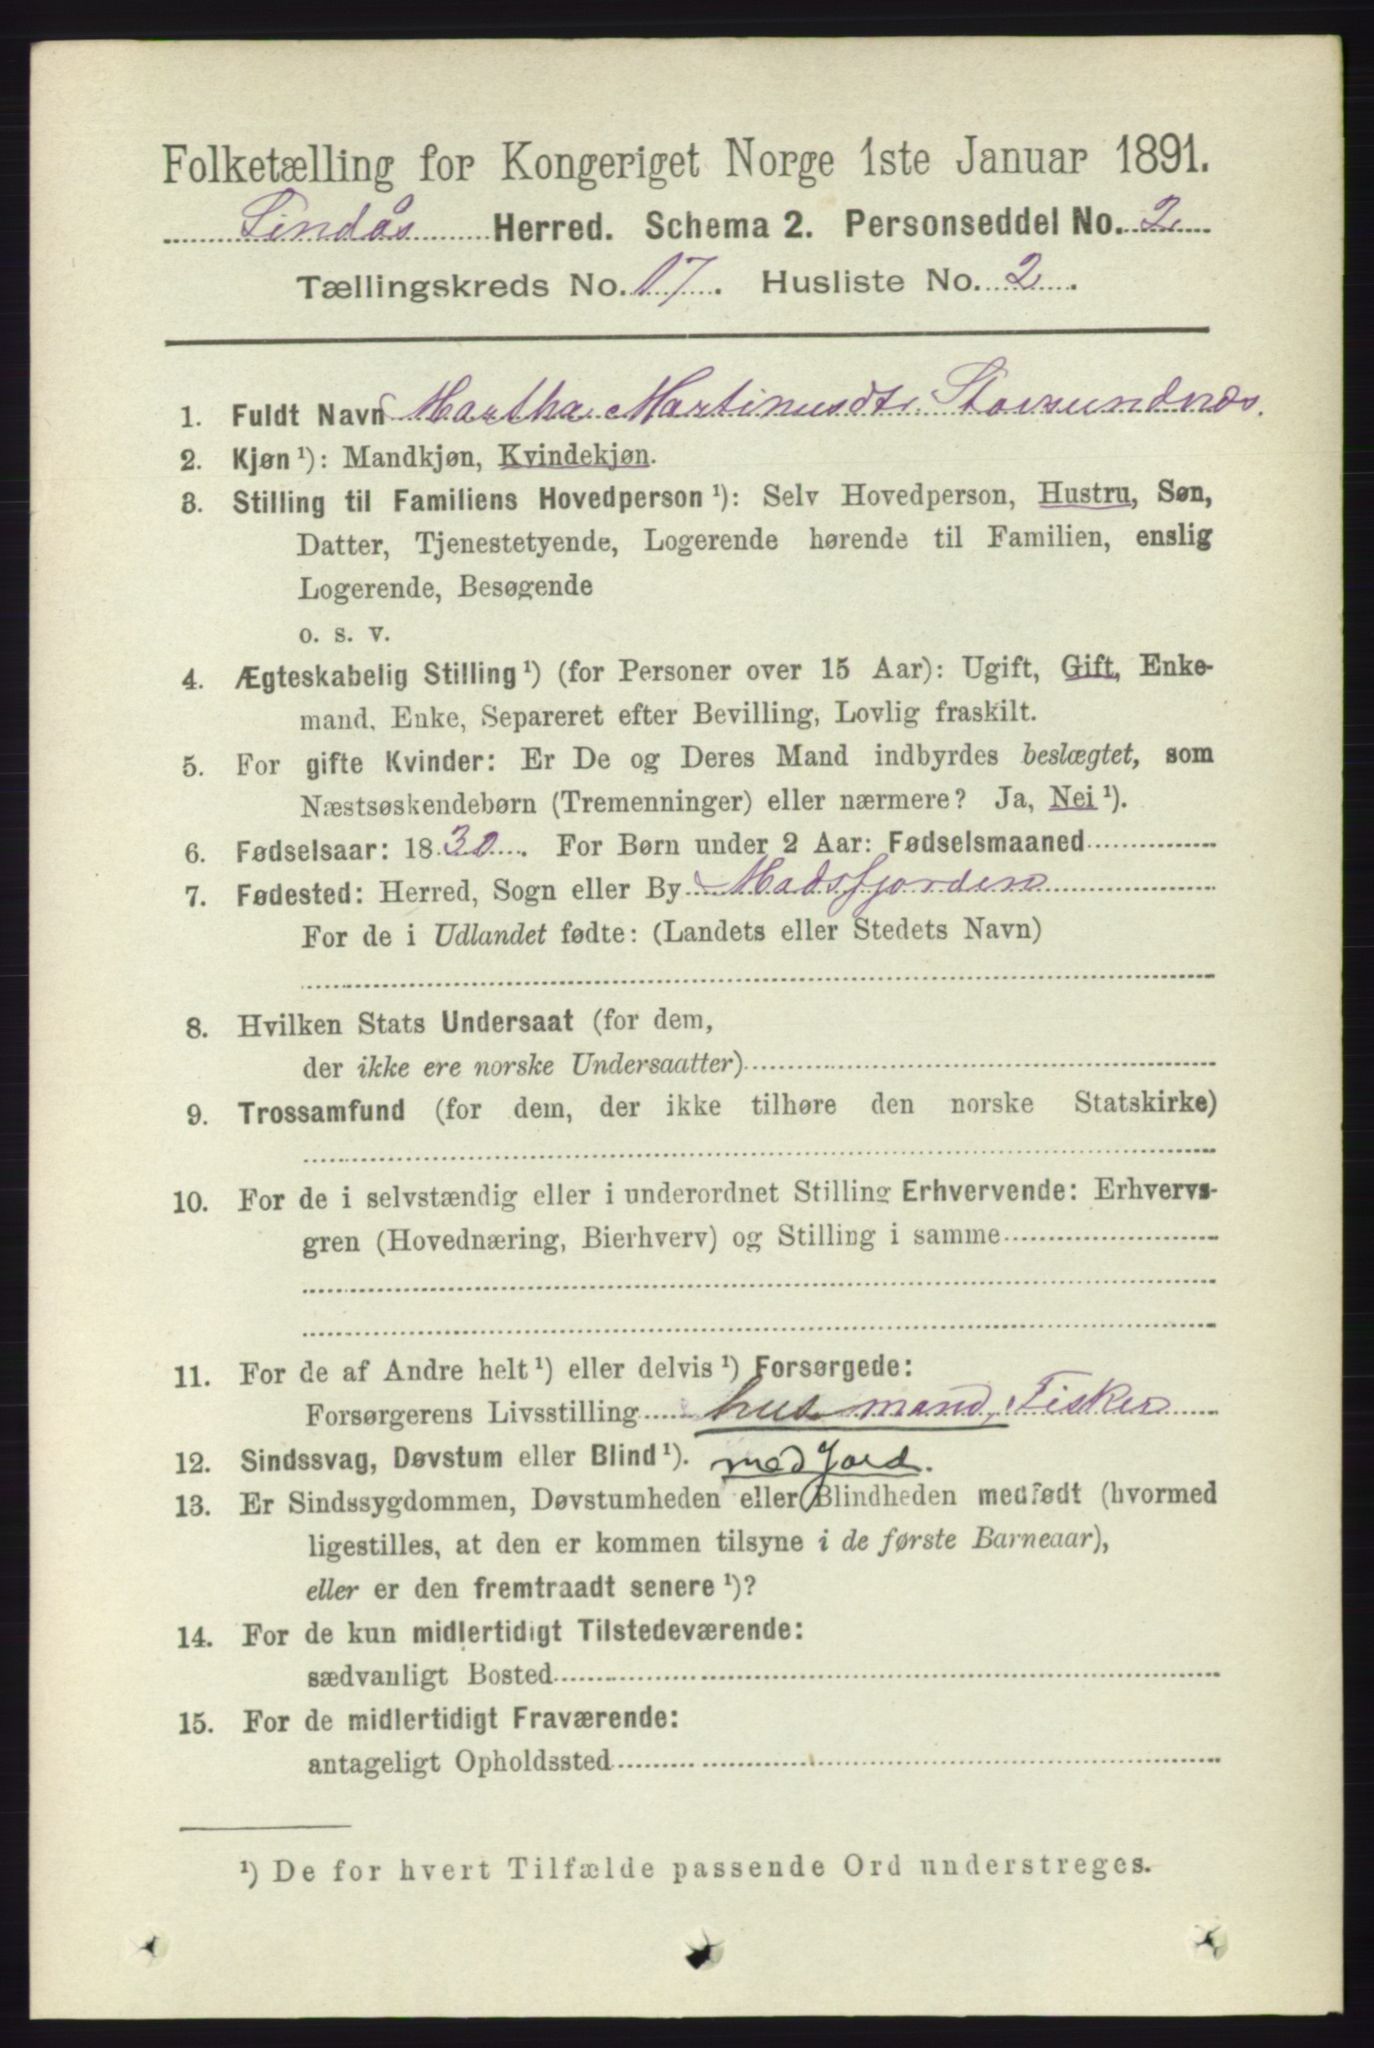 Folketælling for Kongeriget Norge 1ste Januar 1891.
Lindås Herred. Schema 2. Personseddel No. 2
Tællingskreds No. 17. Husliste No. 2.
1. Fuldt Navn Martha Martinusdtr Storsundnæs.
2. Kjøn ¹): Mandkjøn, Kvindekjøn.
3. Stilling til Familiens Hovedperson ¹): Selv Hovedperson, Hustru, Søn,
Datter, Tjenestetyende, Logerende hørende til Familien, enslig
Logerende, Besøgende
o. s. v.
4. Ægteskabelig Stilling ¹) (for Personer over 15 Aar): Ugift, Gift, Enke-
mand, Enke, Separeret efter Bevilling, Lovlig fraskilt.
5. For gifte Kvinder: Er De og Deres Mand indbyrdes beslægtet, som
Næstsøskendebørn (Tremenninger) eller nærmere? Ja, Nei ¹).
6. Fødselsaar: 1830. For Børn under 2 Aar: Fødselsmaaned
7. Fødested: Herred, Sogn eller By Madsfjorden
For de i Udlandet fødte: (Landets eller Stedets Navn)
8. Hvilken Stats Undersaat (for dem,
der ikke ere norske Undersaatter)
9. Trossamfund (for dem, der ikke tilhøre den norske Statskirke)
10. For de i selvstændig eller i underordnet Stilling Erhvervende: Erhvervs-
gren (Hovednæring, Bierhverv) og Stilling i samme
11. For de af Andre helt ¹) eller delvis ¹) Forsørgede:
Forsørgerens Livsstilling husmand, Fisker
12. Sindssvag, Døvstum eller Blind ¹). med Jord.
13. Er Sindssygdommen, Døvstumheden eller Blindheden medfødt (hvormed
ligestilles, at den er kommen tilsyne i de første Barneaar),
eller er den fremtraadt senere ¹)?
14. For de kun midlertidigt Tilstedeværende:
sædvanligt Bosted
15. For de midlertidigt Fraværende:
antageligt Opholdssted
¹) De for hvert Tilfælde passende Ord understreges.